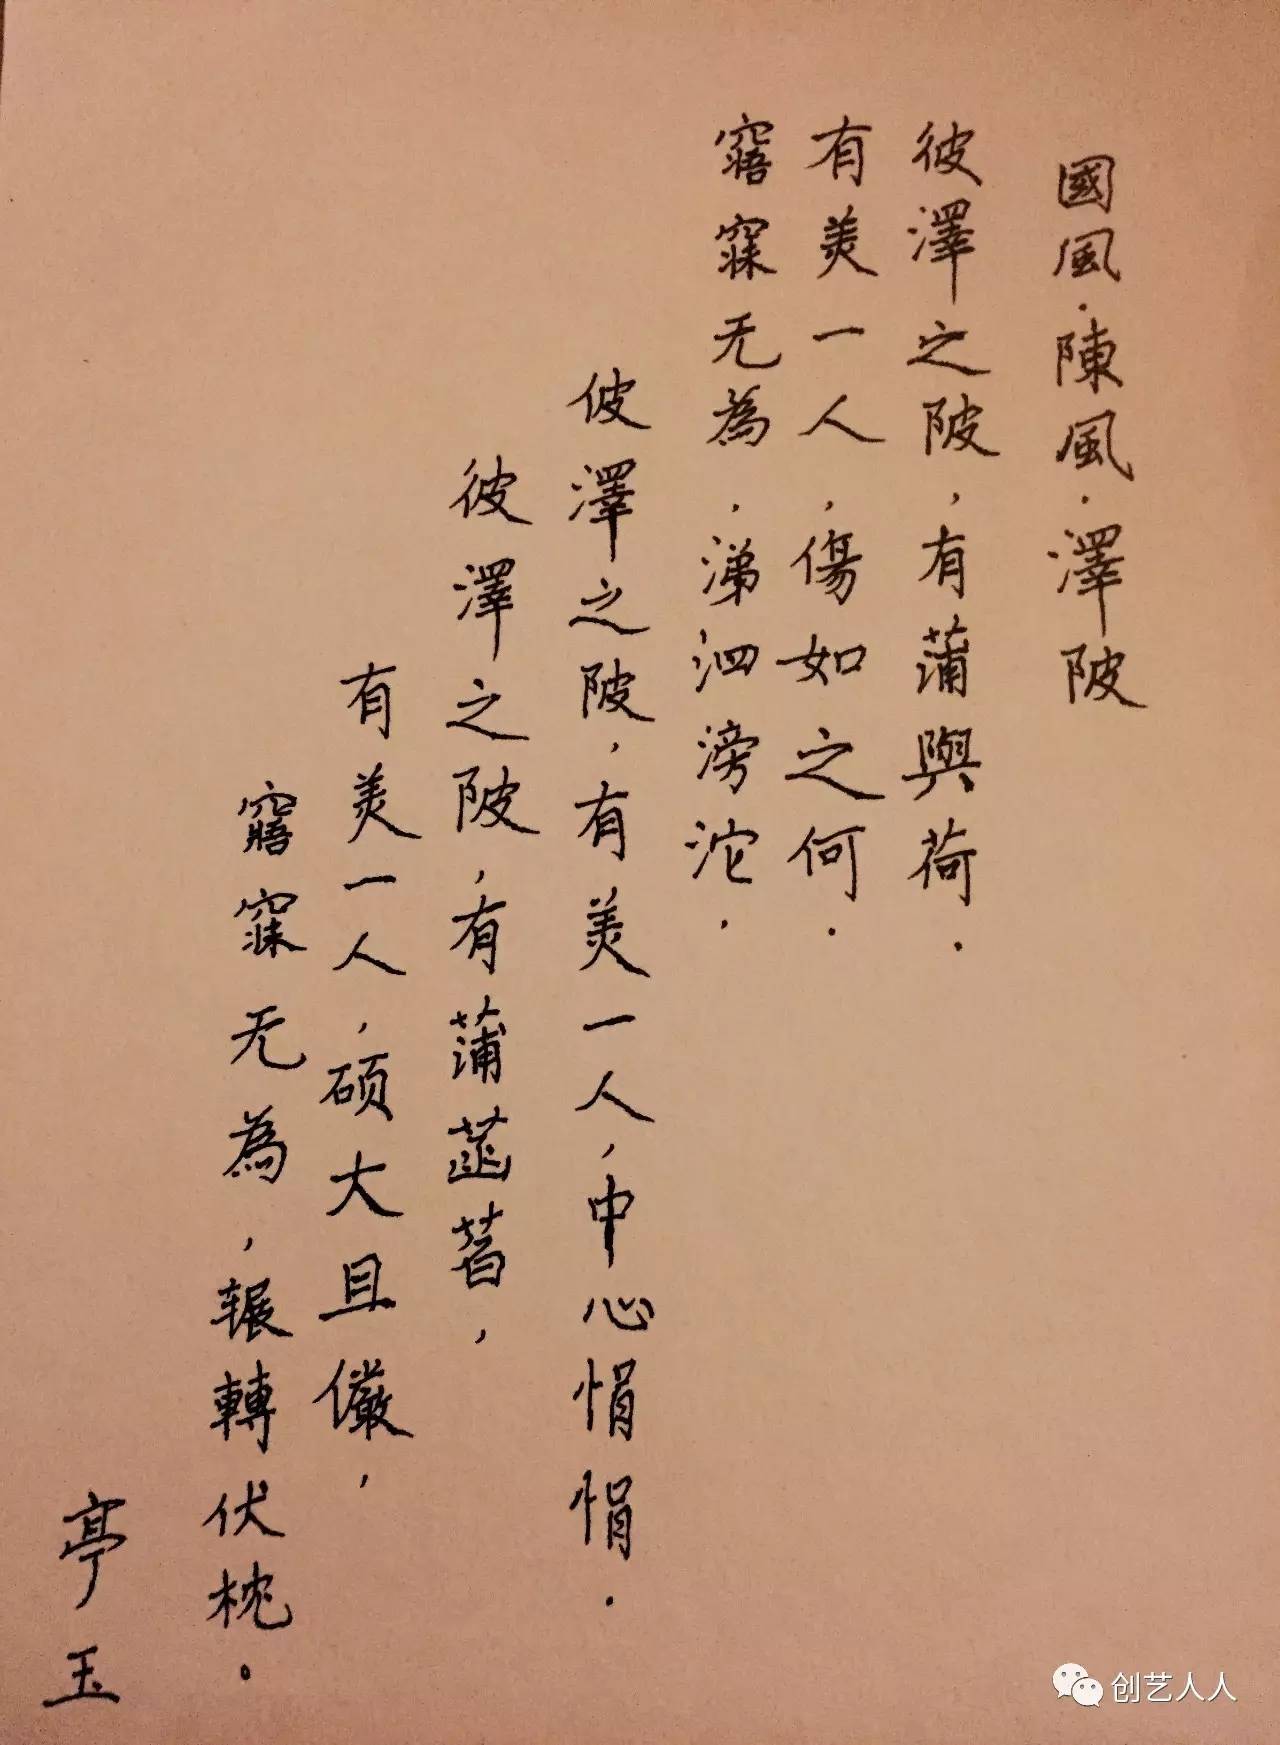 國風·陳風·澤陂
彼澤之陂，有蒲與荷．
有美一人，傷如之何．
寤寐无為，涕泗滂沱．
彼澤之陂，有美一人，中心悁悁．
彼澤之陂，有蒲菡萏，
有美一人，碩大且儼，
寤寐无為，輾轉伏枕。
亭玉
创艺人人